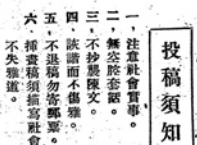 投稿須知
一，注意社會實事。
二，無空腔套話。
三，不抄襲陳文。
四，詼諧而不傷雅。
五，不退稿勿寄郵票。
六，插畫稿須描寫社會
不失雅道。